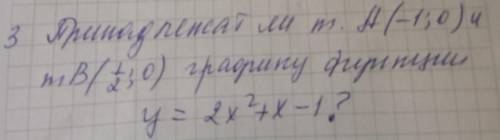 3 Принадлежат ли т. А(-1;0) и
т В(1/2;0) графику функции
у = 2x²+x-1?